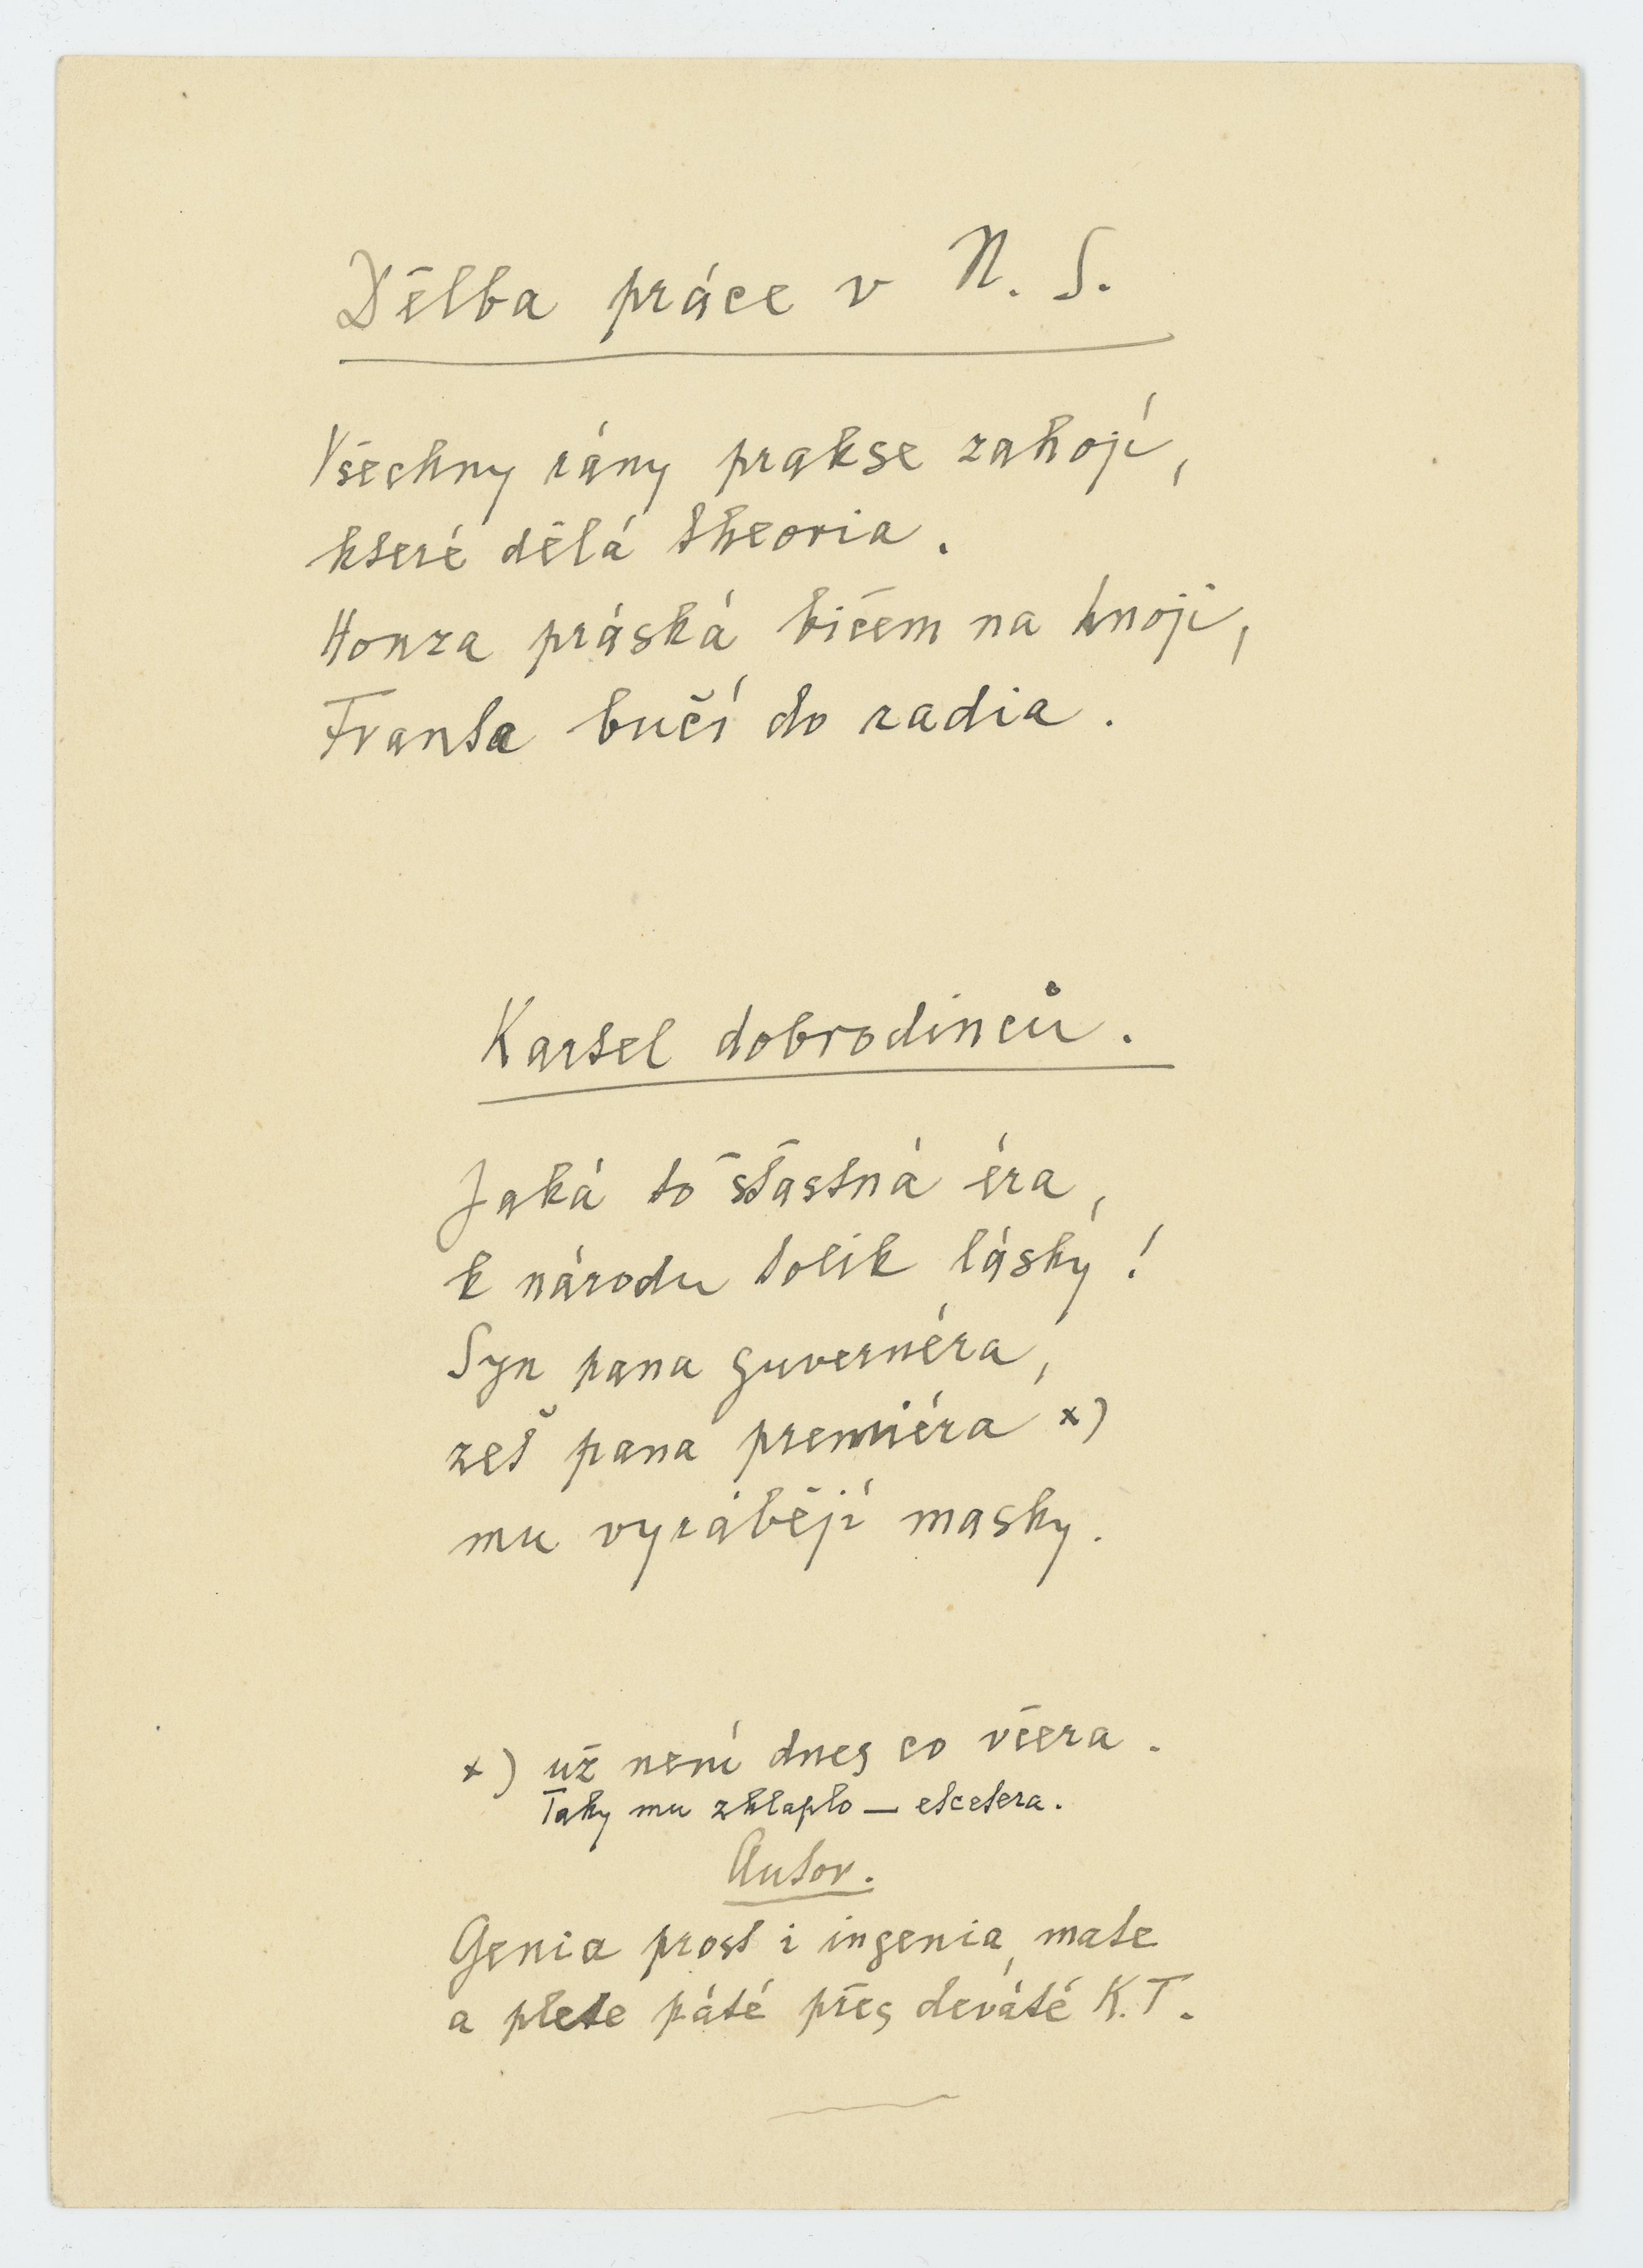 Dělba práce v N. S.
Všechny rány prakse zahojí,
které dělá theoria.
Honza práská bičem na hnoji,
Franta bučí do radia.
Kartel dobrodinců.
Jaká to šťastná éra,
k národu tolik lásky!
Syn pana guvernéra,
zeť pana premiéra x)
mu vyrábějí masky.
x) už není dnes co včera.
Taky mu zklaplo – etcetera.
Autor.
Genia prost i ingenia, mate
a plete páté přes deváté K. T.